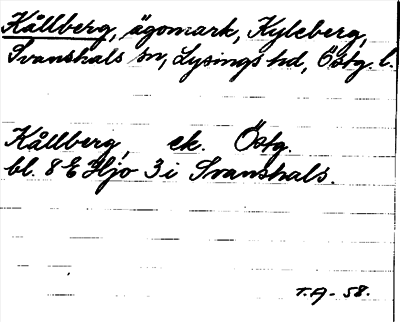 Kållberg, ägomark, Kyleberg,
Svanshals sn, Lysings hd, Östg. l.
Kållberg, ek. Östg.
bl. 8 E Hjo 3 i Svanshals.
T.A - 58.